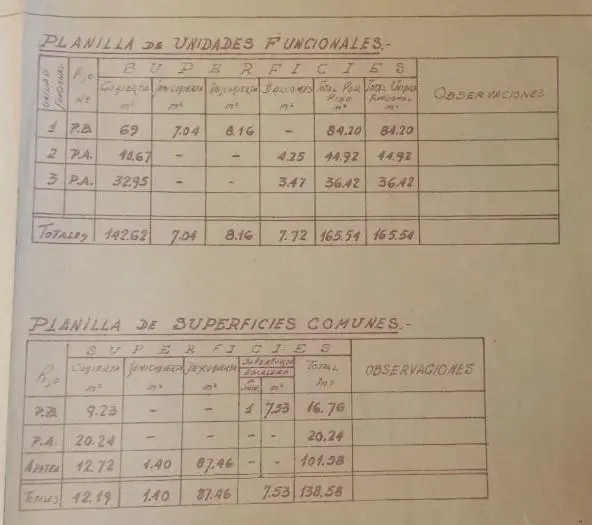 PLANILLA DE UNIDADES FUNCIONALES.-
UNIDAD FUNCIONAL Piso Nº SUPERFICIES OBSERVACIONES
Cubierta m² Semicubierta m² Descubierta m² Balcones m² Total Por Piso m² Total Unidad Funcional m²
1 P.B. 69 7.04 8.16 - 84.20 84.20
2 P.A. 40.67 - - 4.25 44.92 44.92
3 P.A. 32.95 - - 3.47 36.42 36.42
TOTALES 142.62 7.04 8.16 7.72 165.54 165.54
PLANILLA DE SUPERFICIES COMUNES.-
Piso SUPERFICIES OBSERVACIONES
Cubierta m² Semicubierta m² Descubierta m² Superpuesta ESCALERA m² TOTAL m²
P.B. 9.23 - - 1 7.53 16.76
P.A. 20.24 - - - - 20.24
AZOTEA 12.72 1.40 87.46 - - 101.58
TOTALES 42.19 1.40 87.46 7.53 138.58